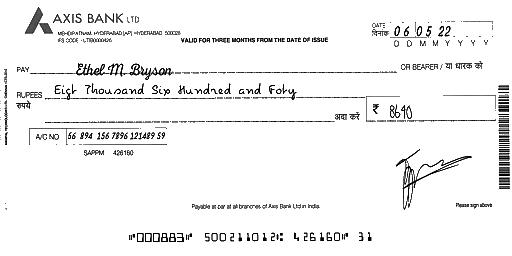 AXIS BANK LTD
MEHDIPATNAM, HYDERABAD [AP] HYDERABAD 500028
IFS CODE - UTIB0000426
VALID FOR THREE MONTHS FROM THE DATE OF ISSUE
DATE
दिनांक 06 05 22
D D M M Y Y Y Y
PAY Ethel M. Bryson OR BEARER / या धारक को
RUPEES Eigt Thousand Six Hundred and Foty
रुपये अदा करें ₹ 8640
A/C NO 56 894 1567896 121489 59
SAPPM 426160
Payable at par at all branches of Axis Bank Ltd in India.
Please sign above
"000883" 500211012: 426160" 31